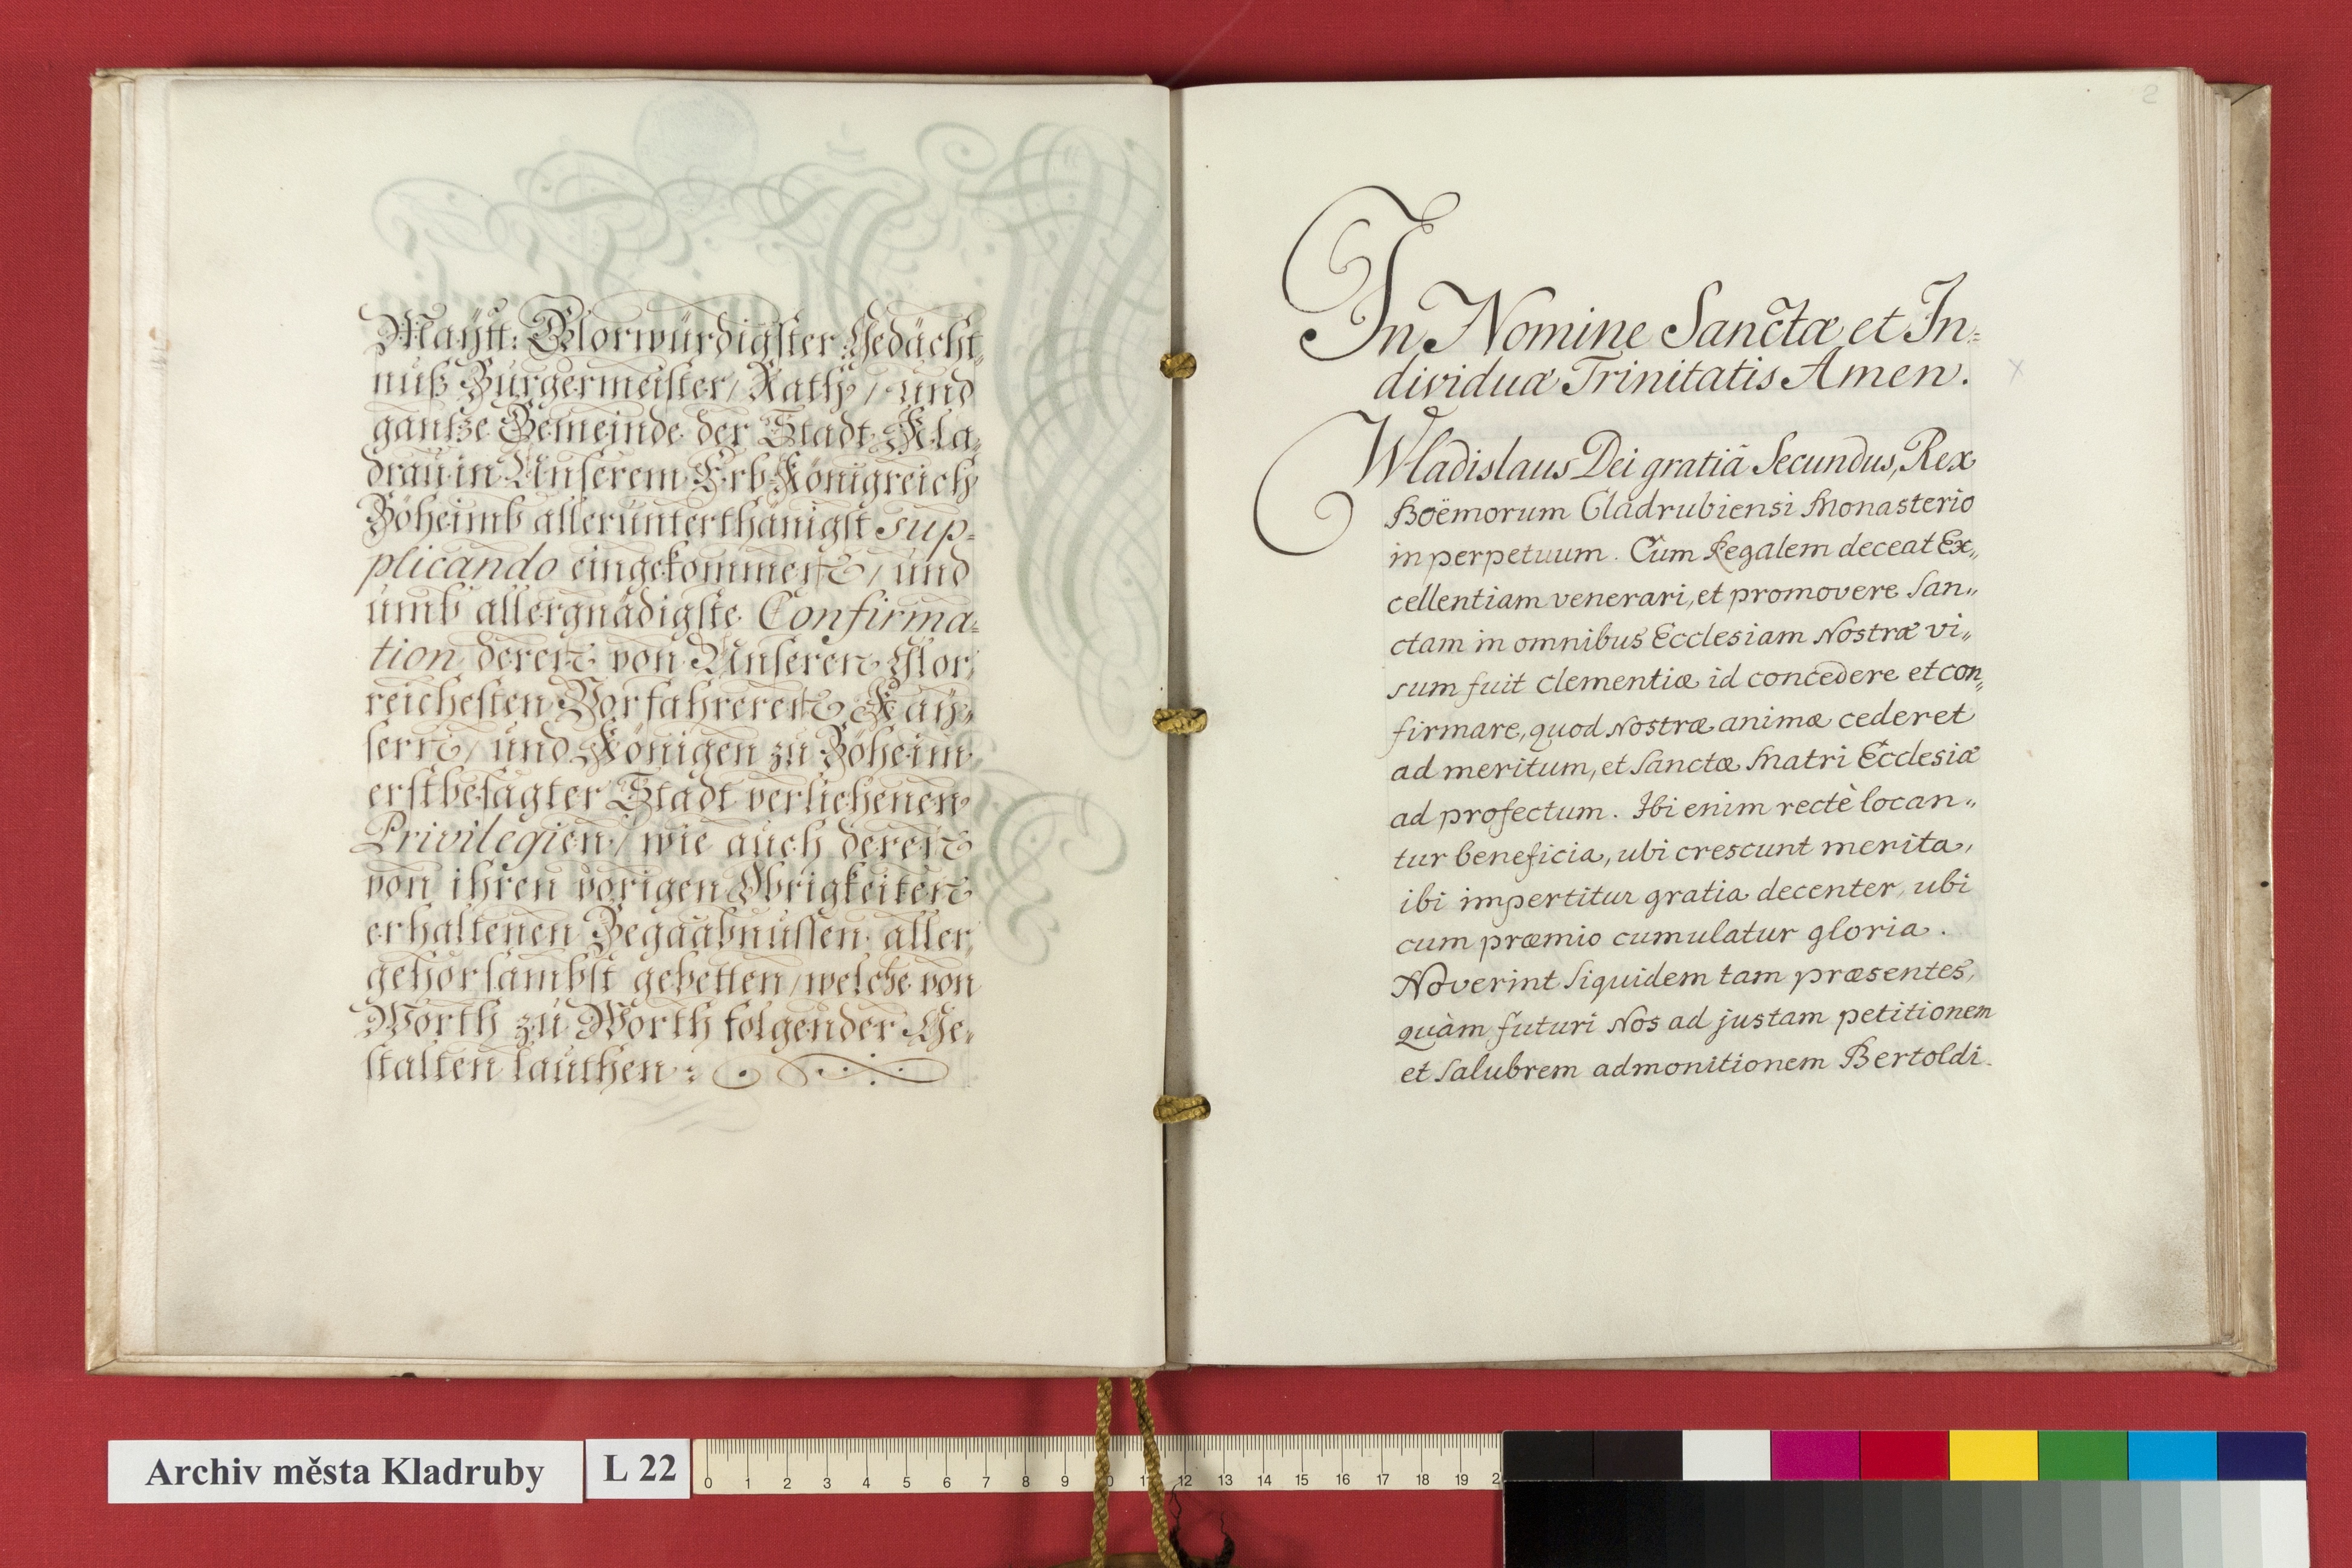 Maÿtt: Glorwürdigster Gedächt-
nuß Burgermeister/ Rath/ und
gantze Gemeinde der Stadt Kla-
drau in Unserem Erb-Königreich
Böheimb allerunterthänigst sup-
plicando eingekommen/ und
umb allergnädigste Confirma-
tion deren von Unseren Glor-
reichesten Vorfahreren Kaÿ-
sern/ und Königen zu Böheim
erstbesagter Stadt verliehenen
Privilegien/ wie auch deren
von ihren vorigen Obrigkeiten
erhaltenen Begaabnussen aller-
gehorsambst gebetten/ welche von
Worth zu Worth folgender Ge-
stalten lauthen:
2
In Nomine Sanctæ et In=
dividuæ Trinitatis Amen.
Wladislaus Dei gratiâ Secundus, Rex
Boëmorum Cladrubiensi Monasterio
in perpetuum. Cùm Regalem deceat Ex„
cellentiam venerari, et promovere San„
ctam in omnibus Ecclesiam Nostræ vi„
sum fuit Clementiæ id concedere et con„
firmare, quod Nostræ animæ cederet
ad meritum, et Sanctæ Matri Ecclesiæ
ad profectum. Ibi enim rectè locan„
tur beneficia, ubi crescunt merita,
ibi impertitur gratia decenter, ubi
cum præmio cumulatur gloria.
Noverint Siquidem tam præsentes,
quàm futuri Nos ad justam petitionem
et Salubrem admonitionem Bertoldi
Archiv města Kladruby L 22
0 1 2 3 4 5 6 7 8 9 10 11 12 13 14 15 16 17 18 19 2